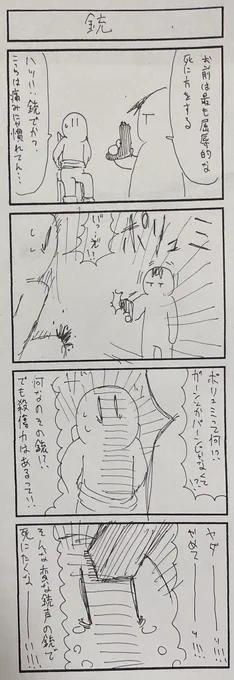 銃
お前は最も屈辱的な
死に方をする
ハッ!!銃でか?
こちらは痛みにゃ慣れてん…
いっ…え!?
ポリュミって何!?
ガーンとかバーンじゃなくて!?
何なのその銃!?
でも殺傷力はあるって!!
ヤダーーー!!!
やめてーーー!!!
そんな変な銃声の銃で
死にたくなーーー!!!